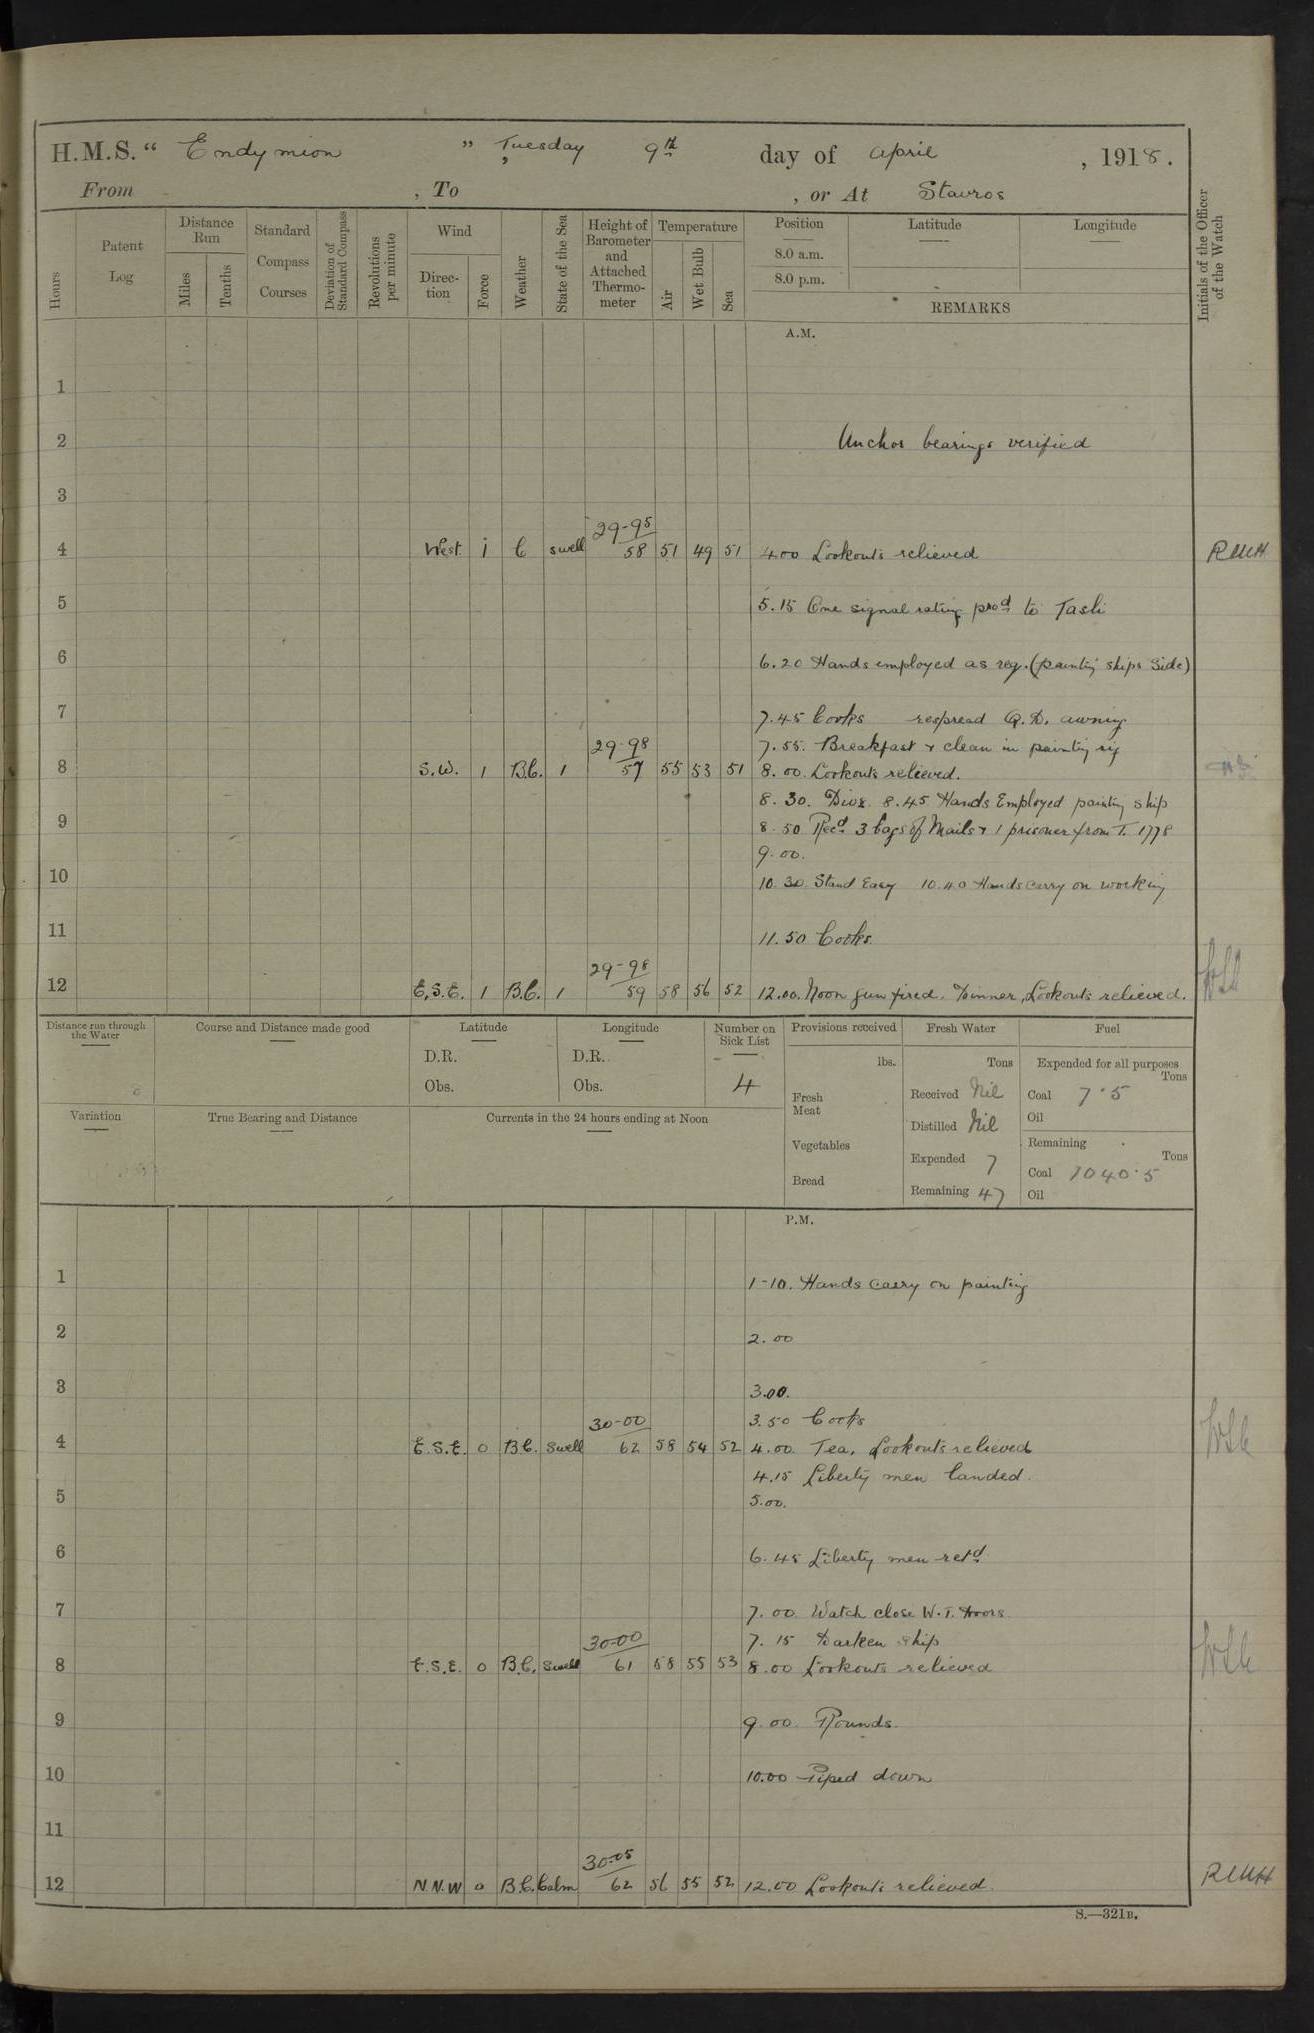 H.M.S. " Endymion " Tuesday 9th day of April, 1918.
From , To , or At Stavros
Hours
Patent Log
Distance Run
Miles
Tenths
Standard Compass Courses
Deviation of Standard Compass
Revolutions per minute
Wind
Direction
Force
Weather
State of the Sea
Height of Barometer and Attached Thermometer
Temperature
Air
Wet Bulb
Sea
Position
8.0 a.m.
8.0 p.m.
Latitude
Longitude
REMARKS
Initials of the Officer of the Watch
A.M.
1
2 Anchor bearings verified
3
29-95
4 West 1 C swell 58 51 49 51 4.00 Lookouts relieved
5 5.15 One signal rating procd to Tasli
6 6.20 Hands employed as req. (painting ships side)
7 7.45 Cooks respread Q.D. awning
29-98 7.55. Breakfast & clean in painting rig
8 S.W. 1 B.C. 1 57 55 53 51 8.00. Lookouts relieved.
8.30. Divs. 8.45 Hands Employed painting ship
9 8.50 Recd 3 bags of Mails & 1 prisoner from T. 1778
9.00.
10 10.30. Stand Easy 10.40 Hands carry on working
11 11.50 Cooks.
29-98
12 E.S.E. 1 B.C. 1 59 58 56 52 12.00. Noon gun fired. Dinner, Lookouts relieved.
Distance run through the Water
Course and Distance made good
Latitude
D.R.
Obs.
Longitude
D.R.
Obs.
Number on Sick List
4
Provisions received
lbs.
Fresh Meat
Vegetables
Bread
Fresh Water
Tons
Received Nil
Distilled Nil
Expended 7
Remaining 47
Fuel
Expended for all purposes
Tons
Coal 7.5
Oil
Remaining
Tons
Coal 1040.5
Oil
Variation
True Bearing and Distance
Currents in the 24 hours ending at Noon
P.M.
1 1-10. Hands carry on painting
2 2.00
3 3.00.
30-00 3.50 Cooks
4 E.S.E. 0 B.C. Swell 62 58 54 52 4.00. Tea, Lookouts relieved
4.15 Liberty men landed.
5 5.00.
6 6.45 Liberty men retd
7 7.00 Watch close W.T. Doors.
30-00 7.15 Darken ship
8 E.S.E. 0 B.C. Swell 61 58 55 53 8.00 Lookouts relieved
9 9.00. Rounds.
10 10.00 Piped down
11
30-05
12 N.N.W 0 B.C. Calm 62 56 55 52 12.00 Lookouts relieved.
S.—321B.